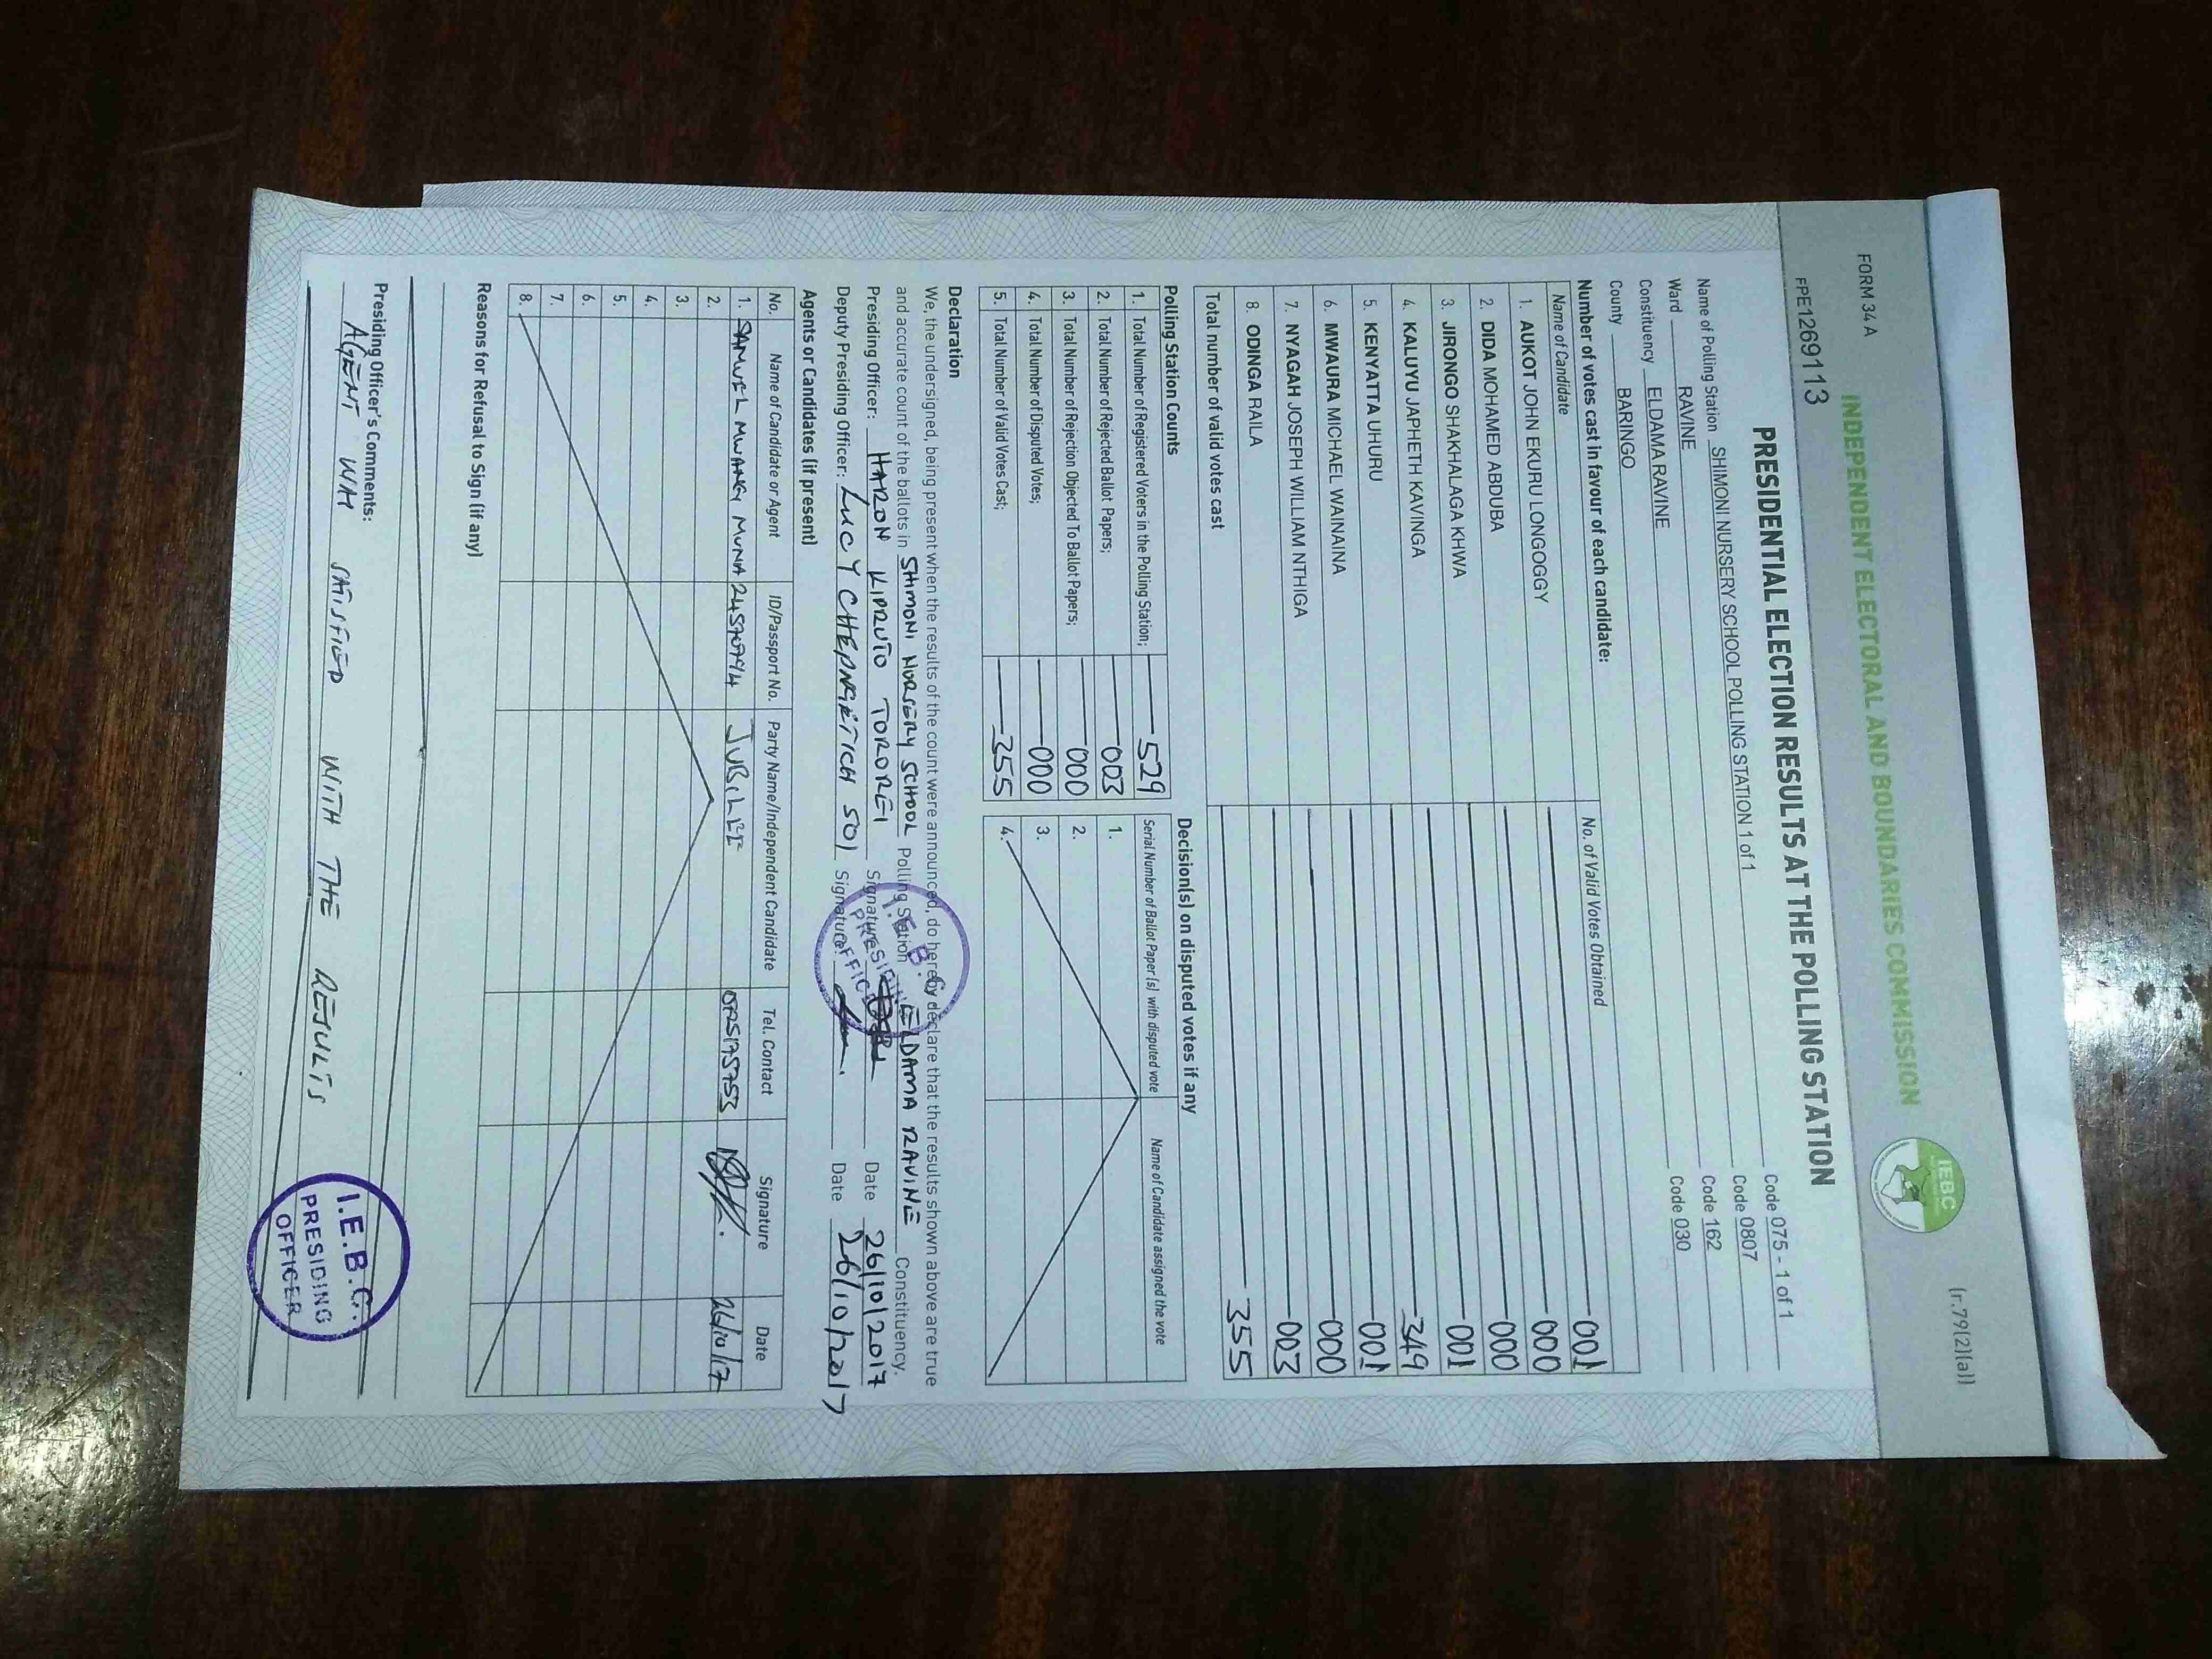 FORM 34 A
(r.79(2)(a))
INDEPENDENT ELECTORAL AND BOUNDARIES COMMISSION
IEBC
FPE1269113
PRESIDENTIAL ELECTION RESULTS AT THE POLLING STATION
Name of Polling Station SHIMONI NURSERY SCHOOL POLLING STATION 1 of 1 Code 075 - 1 of 1
Ward RAVINE Code 0807
Constituency ELDAMA RAVINE Code 162
County BARINGO Code 030
Number of votes cast in favour of each candidate:
Name of Candidate No. of Valid Votes Obtained
1. AUKOT JOHN EKURU LONGOGGY 001
2. DIDA MOHAMED ABDUBA 000
3. JIRONGO SHAKHALAGA KHWA 000
4. KALUYU JAPHETH KAVINGA 001
5. KENYATTA UHURU 349
6. MWAURA MICHAEL WAINAINA 001
7. NYAGAH JOSEPH WILLIAM NTHIGA 000
8. ODINGA RAILA 003
Total number of valid votes cast 355
Polling Station Counts
1. Total Number of Registered Voters in the Polling Station; 529
2. Total Number of Rejected Ballot Papers; 003
3. Total Number of Rejection Objected To Ballot Papers; 000
4. Total Number of Disputed Votes; 000
5. Total Number of Valid Votes Cast; 355
Decision(s) on disputed votes if any
Serial Number of Ballot Paper(s) with disputed vote Name of Candidate assigned the vote
1.
2.
3.
4.
Declaration
We, the undersigned, being present when the results of the count were announced, do hereby declare that the results shown above are true
and accurate count of the ballots in SHIMONI NURSERY SCHOOL Polling Station ELDAMA RAVINE Constituency.
Presiding Officer: HARON KIPRUTO TOROREI Signature Date 26/10/2017
Deputy Presiding Officer: LUCY CHEPNGETICH SOI Signature Date 26/10/2017
I.E.B.C. PRESIDING OFFICER
Agents or Candidates (if present)
No. Name of Candidate or Agent ID/Passport No. Party Name/Independent Candidate Tel. Contact Signature Date
1. SAMUEL MWANGI MUNA 24570794 JUBILEE 0725175753 26/10/17
2.
3.
4.
5.
6.
7.
8.
Reasons for Refusal to Sign (if any)
Presiding Officer's Comments:
AGENT WAS SATISFIED WITH THE RESULTS
I.E.B.C.
PRESIDING
OFFICER